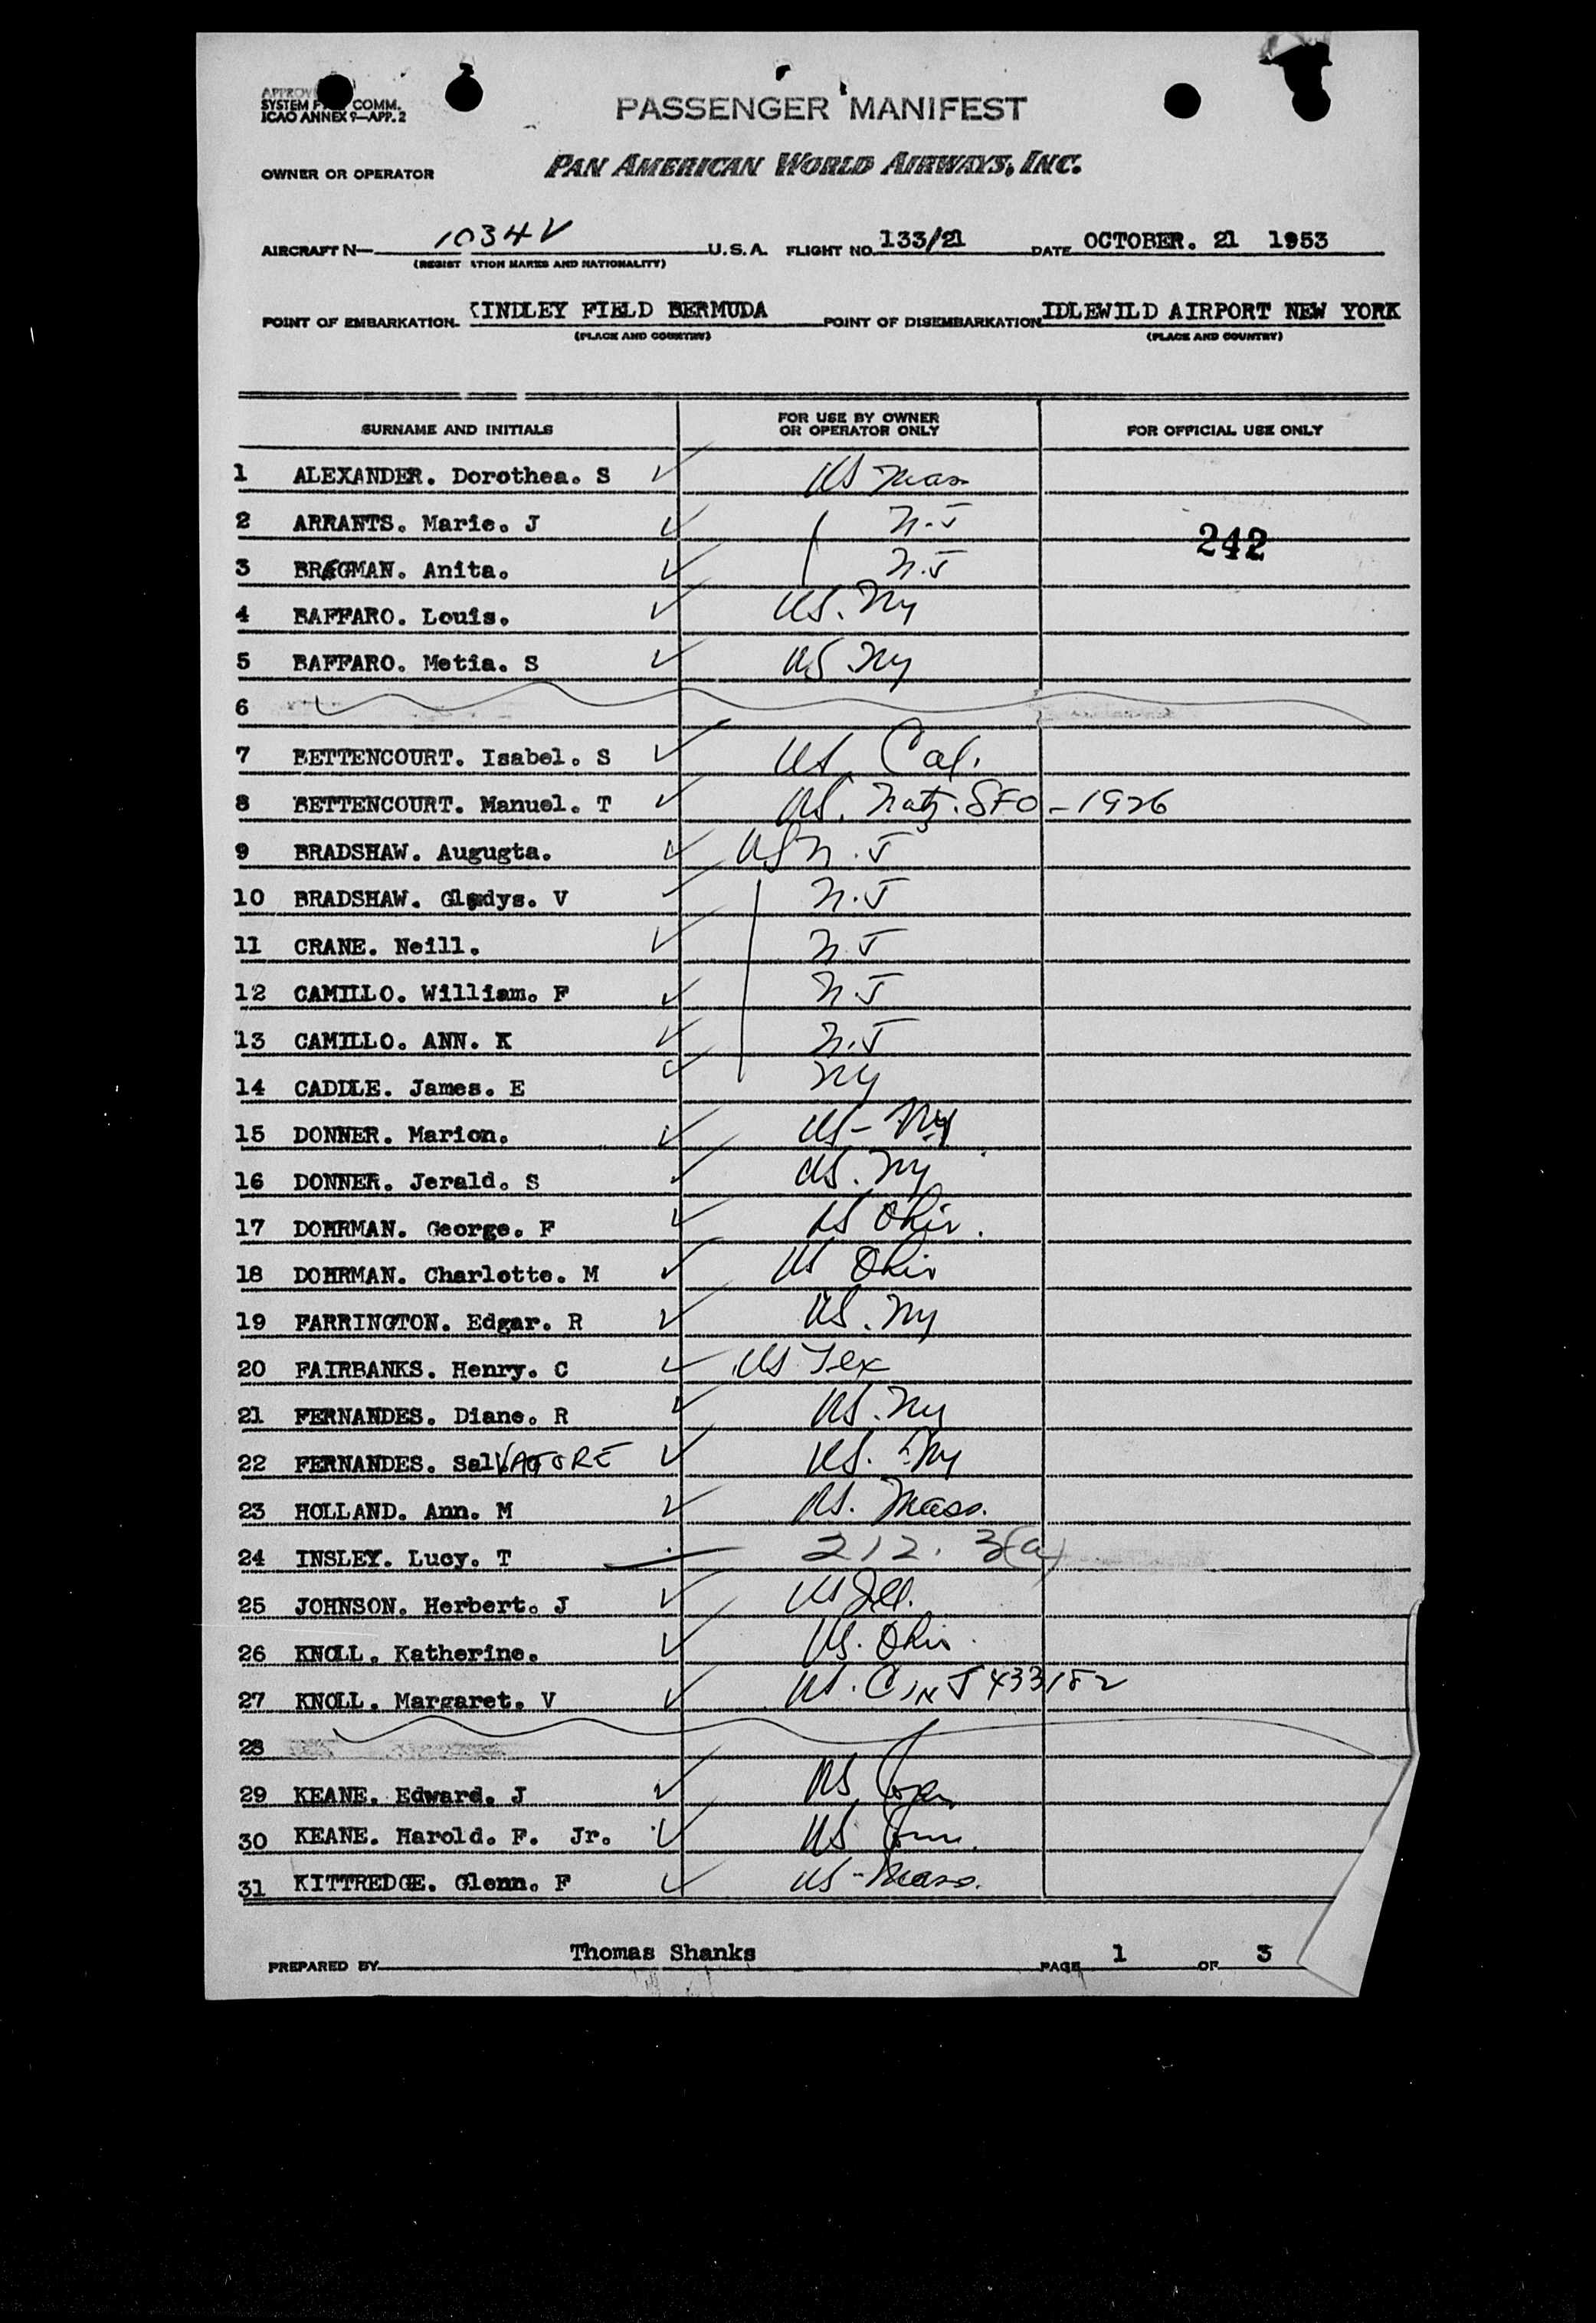 SYSTEM COMM.
ICAO ANNEX 9—APP. 2
PASSENGER MANIFEST
OWNER OR OPERATOR PAN AMERICAN WORLD AIRWAYS, INC.
AIRCRAFT N— 1034V U.S.A. FLIGHT NO. 133/21 DATE OCTOBER. 21 1953
(REGIST ATION MARKS AND NATIONALITY)
POINT OF EMBARKATION KINDLEY FIELD BERMUDA POINT OF DISEMBARKATION IDLEWILD AIRPORT NEW YORK
(PLACE AND COUNTRY) (PLACE AND COUNTRY)
SURNAME AND INITIALS FOR USE BY OWNER OR OPERATOR ONLY FOR OFFICIAL USE ONLY
1 ALEXANDER. Dorothea. S US Mass
2 ARRANTS. Marie. J N.J
242
3 BREGMAN. Anita. N.J
4 BAFFARO. Louis. US. NY
5 BAFFARO. Metia. S US NY
6
7 BETTENCOURT. Isabel. S US Cal.
8 BETTENCOURT. Manuel. T US. Natz. SFO - 1926
9 BRADSHAW. Augugta. US N.J
10 BRADSHAW. Gladys. V N.J
11 CRANE. Neill. N.J
12 CAMILLO. William. F N.J
13 CAMILLO. ANN. K N.J
14 CADDLE. James. E NY
15 DONNER. Marion. US - NY
16 DONNER. Jerald. S US. NY
17 DOHRMAN. George. F US Ohio.
18 DOHRMAN. Charlotte. M US Ohio
19 FARRINGTON. Edgar. R US. NY
20 FAIRBANKS. Henry. C US Tex
21 FERNANDES. Diane. R US. NY
22 FERNANDES. SalVATORE US. NY
23 HOLLAND. Ann. M US. Mass.
24 INSLEY. Lucy. T 212. 3(a)
25 JOHNSON. Herbert. J US Ill.
26 KNOLL. Katherine. US. Ohio.
27 KNOLL. Margaret. V US. C IN J 433182
28
29 KEANE. Edward. J US Conn
30 KEANE. Harold. F. Jr. US Conn.
31 KITTREDGE. Glenn. F US - Mass.
PREPARED BY Thomas Shanks PAGE 1 OF 3